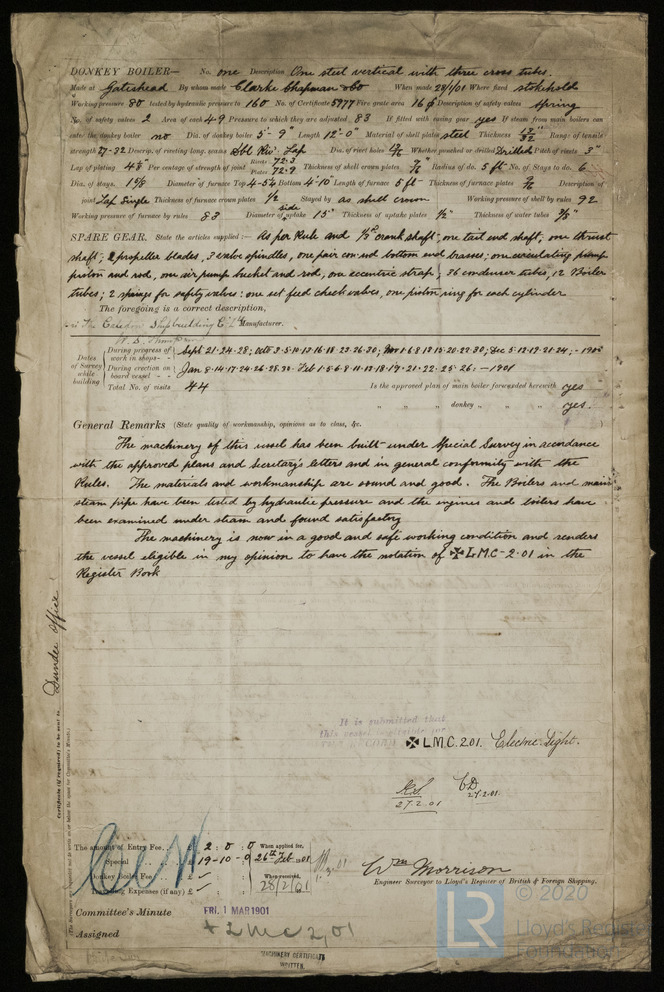 DONKEY BOILER— No. one Description One steel vertical with three cross tubes.
Made at Gateshead By whom made Clarke Chapman & Co When made 28/1/01 Where fixed stokehold
Working pressure 80 tested by hydraulic pressure to 160 No. of Certificate 5977 Fire grate area 16 Description of safety valves Spring
No. of safety valves 2 Area of each 4.9 Pressure to which they are adjusted 83 If fitted with easing gear yes If steam from main boilers can
enter the donkey boiler no Dia. of donkey boiler 5'-9" Length 12'-0" Material of shell plates steel Thickness 13/32 Range of tensile
strength 27-32 Descrip. of riveting long. seams Dbl Riv. Lap Dia. of rivet holes Whether punched or drilled Drilled Pitch of rivets 3"
Lap of plating 4 5/8" Per centage of strength of joint Rivets 72.3 Plates 72.9 Thickness of shell crown plates Radius of do. 5 ft No. of Stays to do. 6
Dia. of stays. 1 5/8 Diameter of furnace Top 4-5 1/2 Bottom 4'-10" Length of furnace 5 ft Thickness of furnace plates Description of
joint Lap Single Thickness of furnace crown plates 1/2 Stayed by as shell crown Working pressure of shell by rules 92
Working pressure of furnace by rules 83 Diameter of side uptake 15" Thickness of uptake plates 1/2" Thickness of water tubes 3/8"
SPARE GEAR. State the articles supplied:— As per Rule and 1/3rd crank shaft; one tail end shaft; one thrust
shaft; 2 propeller blades, 3 valve spindles, one pair con rod bottom end brasses; one circulating pump
piston and rod, one air pump bucket and rod, one eccentric strap, 36 condenser tubes, 12 Boiler
tubes; 2 springs for safety valves: one set feed check valves, one piston ring for each cylinder
The foregoing is a correct description,
The Caledon Shipbuilding Manufacturer.
W. B. Thompson
Dates of Survey while building
During progress of work in shops - - Sept 21-24-28; Oct 3-5-10-13-16-18-23-26-30; Nov 1-6-8-13-15-20-22-30; Dec 5-12-19-21-24; - 1900
During erection on board vessel - - Jan 8-14-17-24-26-28-30. Feb 1-5-6-8-11-13-18-19-21-22-25-26; - 1901
Total No. of visits 44 Is the approved plan of main boiler forwarded herewith yes
" " " donkey " " " yes.
General Remarks (State quality of workmanship, opinions as to class, &c.
The machinery of this vessel has been built under Special Survey in accordance
with the approved plans and Secretary's letters and in general conformity with the
Rules. The materials and workmanship are sound and good. The Boilers and main
steam pipe have been tested by hydraulic pressure and the engines and boilers have
been examined under steam and found satisfactory
The machinery is now in a good and safe working condition and renders
the vessel eligible in my opinion to have the notation of ✠ L.M.C - 2.01 in the
Register Book
Dundee Office
Certificate (if required) to be sent to
It is submitted that
this vessel is eligible for
THE RECORD ✠ L.M.C. 2.01. Electric Light.
27.2.01
27.2.01
The amount of Entry Fee. . £ 2 : 0 : 0 When applied for,
Special £ 19-10-0 26th Feb 01
Donkey Boiler Fee £ When received,
Travelling Expenses (if any) £ 28/2/01
Wm Morrison
Engineer Surveyor to Lloyd's Register of British & Foreign Shipping.
Committee's Minute FRI. 1 MAR 1901
Assigned + LMC 2,01
MACHINERY CERTIFICATE
WRITTEN.
LR
© 2020
Lloyd's Register
Foundation